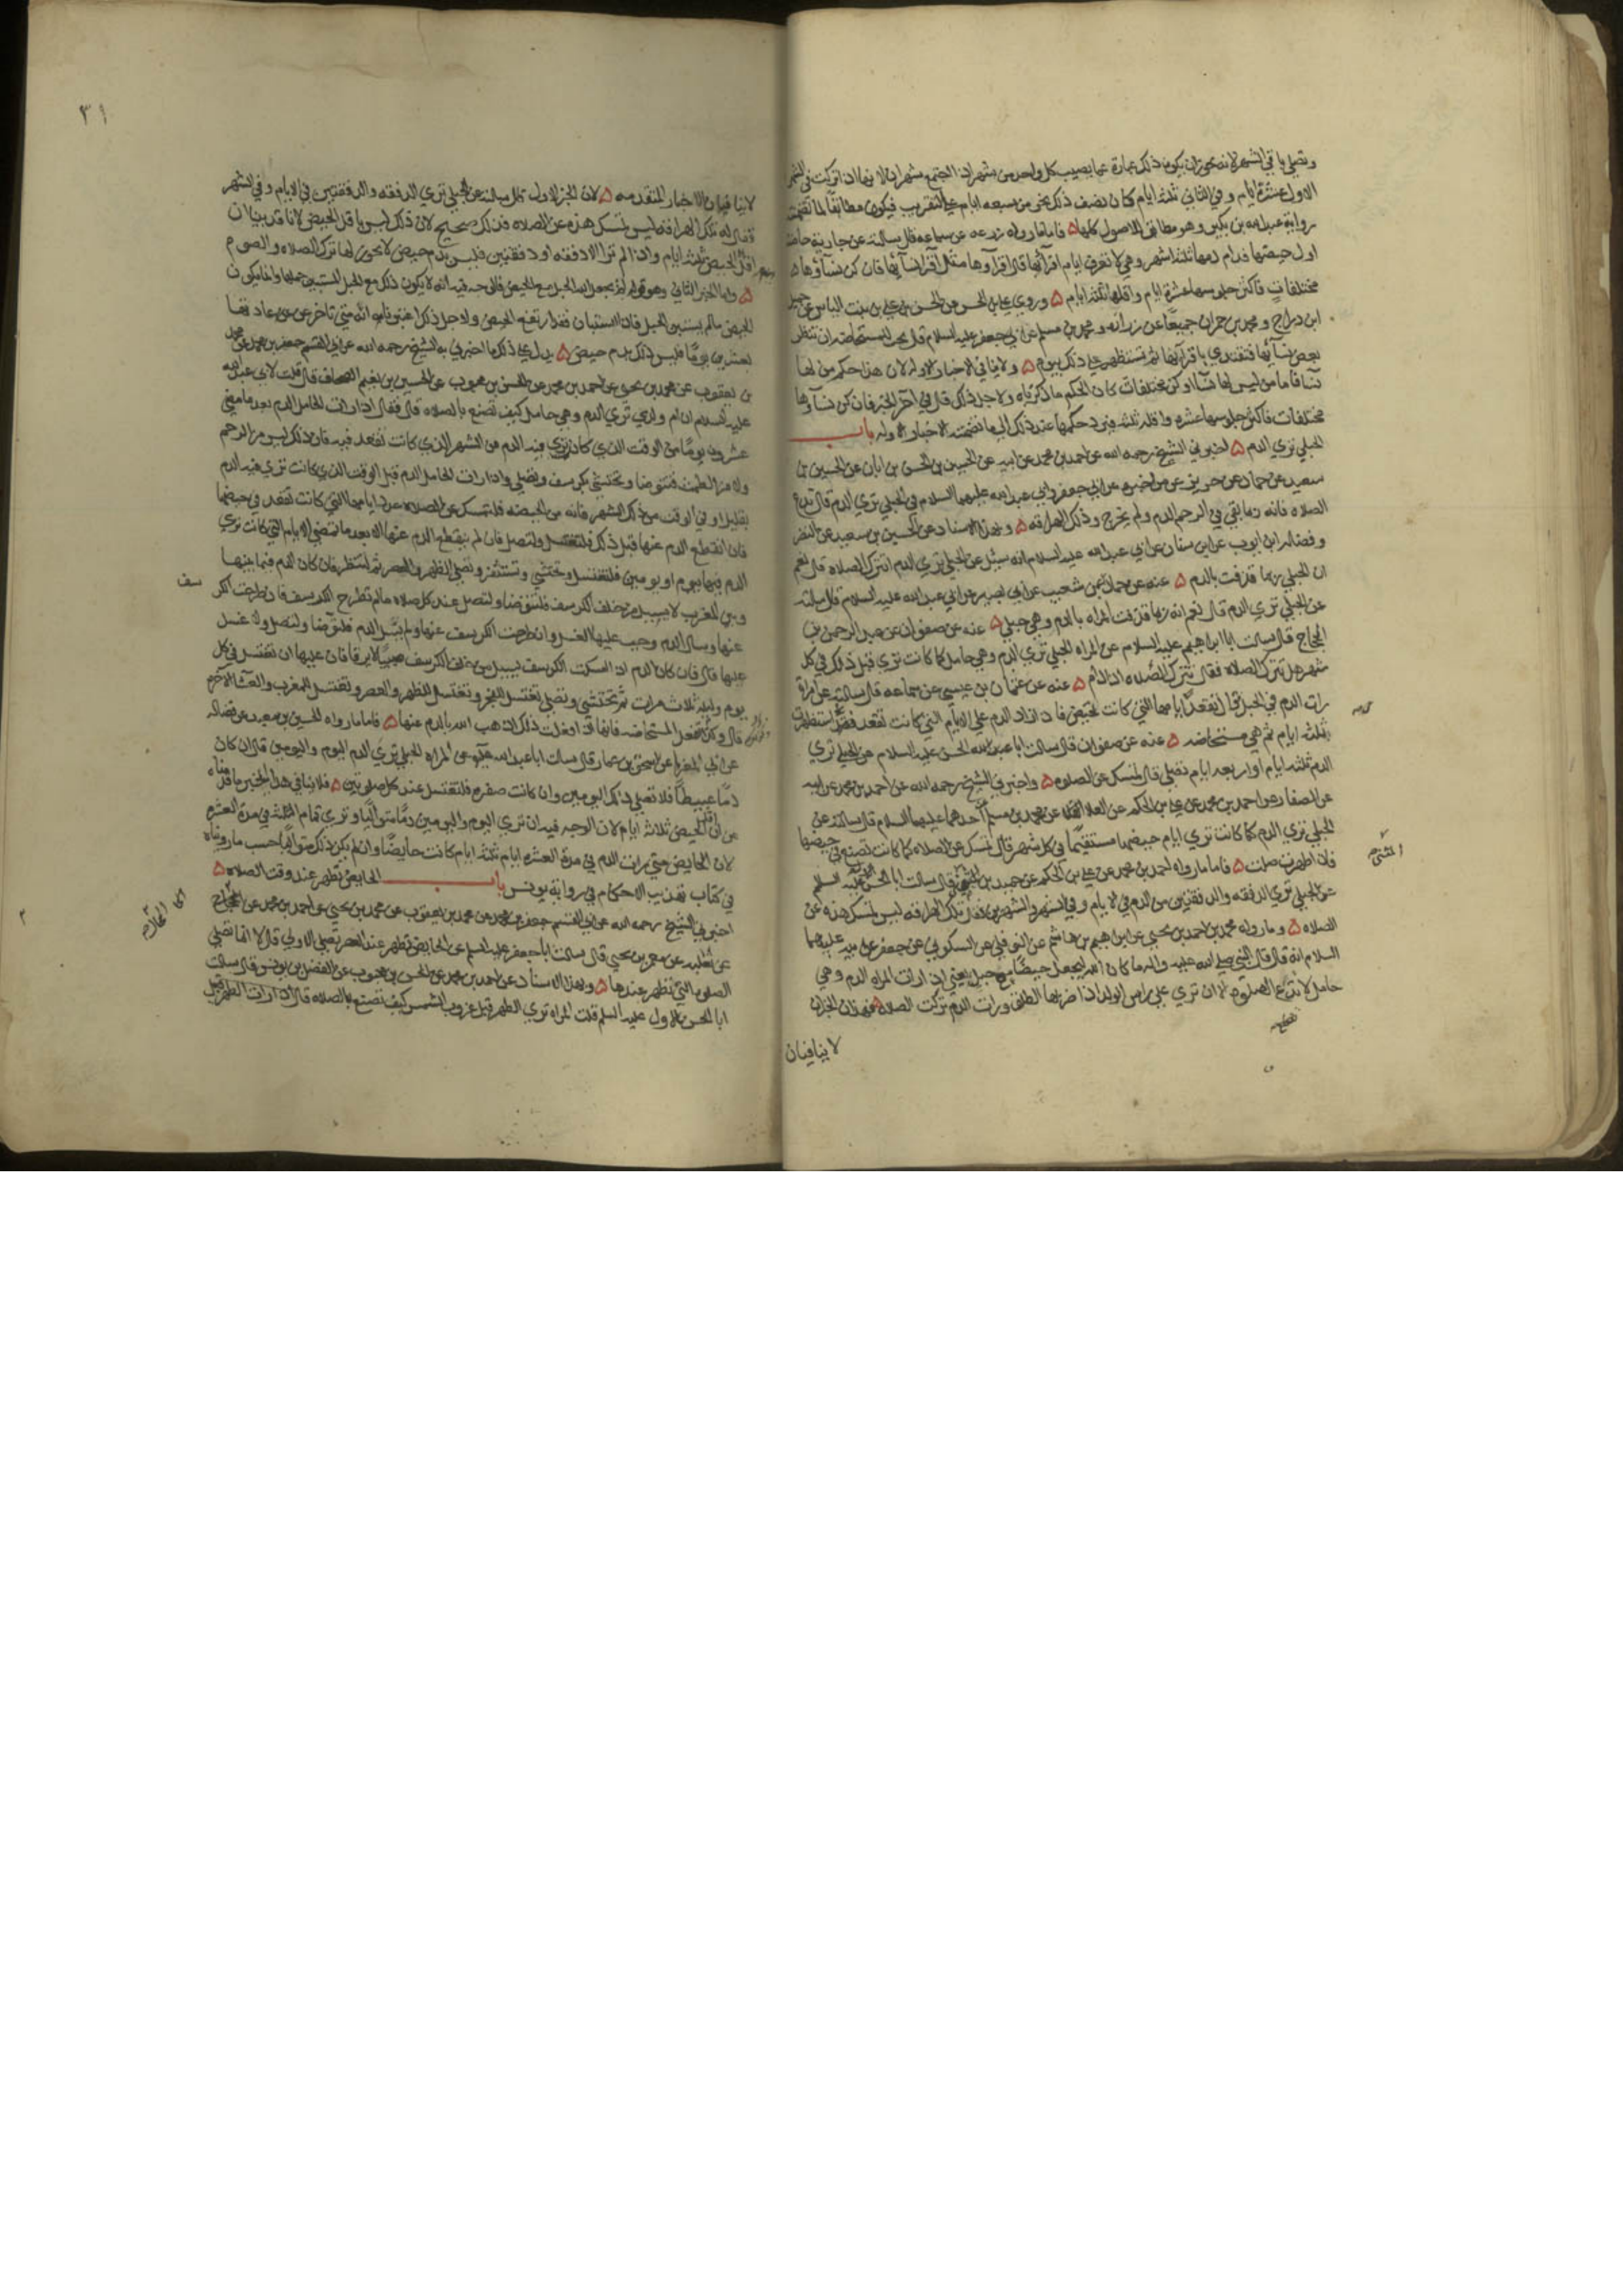 وتصلي باقي الشهر لانه يجوز ان يكون ذلك عبارة عما يصيب كل واحد من شهر اذا اجتمع شهران لانها اذا تركت في الشهر
الاول عشرة ايام وفي الثاني ثلثة ايام كان نصف ذلك نحو من سبعه ايام علي التقريب فيكون مطابقا لما تضمنته
رواية عبد الله بن بكير وهو مطابق للاصول كلها ۵ فاما ما رواه زرعه عن سماعه قال سالته عن جارية حاضت
اول حيضتها فدام دمها ثلثة اشهر وهي لا تعرف ايام اقرائها قال اقراوها مثل اقرا نسائها فان كن نساوها ۵
مختلفات فاكثر جلوسها عشرة ايام واقلها ثلثة ايام ۵ وروي علي بن الحسن عن الحسن بن علي بن بنت الياس عن جميل
ابن دراج ومحمد بن حمران جميعا عن زراره ومحمد بن مسلم عن ابي جعفر عليه السلام قال يجب للمستحاضه ان تنظر
بعض نسائها فتقتدي باقرائها ثم تستظهر علي ذلك بيوم ۵ ولا ينافي الاخبار الاوله لان هذا حكم من لها
نسا فاما من ليس لها نسا او كن مختلفات كان الحكم ما ذكرناه ولاجل ذلك قال في آخر الخبر فان كن نساوها
مختلفات فاكثر جلوسها عشره واقله ثلثه فيرد حكمها عند ذلك الي ما تضمنته الاخبار الاوله باب
الحبلي تري الدم ۵ اخبرني الشيخ رحمه الله عن احمد بن محمد عن ابيه عن الحسين بن الحسن بن ابان عن الحسين بن
سعيد عن حماد عن حريز عن من اخبره عن ابي جعفر وابي عبد الله عليهما السلام في الحبلي تري الدم قال تدع
الصلاه فانه ربما بقي في الرحم الدم ولم يخرج وتلك الهراقه ۵ وبهذا الاسناد عن الحسين بن سعيد عن النضر
وفضاله ابن ايوب عن ابن سنان عن ابي عبد الله عليه السلام انه سئل عن الحبلي تري الدم اتترك الصلاه قال نعم
ان الحبلي ربما قذفت بالدم ۵ عنه عن حماد عن شعيب عن ابي بصير عن ابي عبد الله عليه السلام قال سالته
عن الحبلي تري الدم قال نعم انه ربما قذفت المراه بالدم وهي حبلي ۵ عنه عن صفوان عن عبد الرحمن بن
الحجاج قال سالت ابا ابراهيم عليه السلام عن المراه الحبلي تري الدم وهي حامل كما كانت تري قبل ذلك في كل
شهر هل تترك الصلاه فقال تترك الصلاه اذا دام ۵ عنه عن عثمان بن عيسي عن سماعه قال سالته عن امراة
رات الدم في الحبل قال تقعد ايامها التي كانت تحيض فاذا زاد الدم علي الايام التي كانت تقعد استظهرت
بثلثه ايام ثم هي مستحاضه ۵ عنه عن صفوان قال سالت ابا الحسن عليه السلام عن الحبلي تري
الدم ثلثه ايام او اربعه ايام تصلي قال تمسك عن الصلوه ۵ واخبرني الشيخ رحمه الله عن احمد بن محمد عن ابيه
عن الصفار عن احمد بن محمد عن علي بن الحكم عن العلا عن محمد بن مسلم عن احدهما عليهما السلام قال سالته عن
الحبلي تري الدم كما كانت تري ايام حيضها مستقيما في كل شهر قال تمسك عن الصلاه كما كانت تصنع في حيضها
فاذا طهرت صلت ۵ فاما ما رواه احمد بن محمد عن علي بن الحكم عن حميد بن المثني قال سالت ابا الحسن الاول عليه السلم
عن الحبلي تري الدفقه والدفقتين من الدم في الايام وفي الشهر والشهرين فقال تلك الهراقه ليس تمسك هذه عن
الصلاه ۵ وما رواه محمد بن احمد بن يحيي عن ابراهيم بن هاشم عن النوفلي عن السكوني عن جعفر عن ابيه عليهما
السلام انه قال قال النبي صلي الله عليه واله ما كان الله ليجعل حيضا مع حبل يعني اذا رات المراه الدم وهي
حامل لا تدع الصلوه الا ان تري علي راس الولد اذا ضربها الطلق ورات الدم تركت الصلاه ۵ فهذان الخبران
لا ينافيان
٣١
لا ينافيان الاخبار المتقدمه ۵ لان الخبر الاول قال سالته عن الحبلي تري الدفقه والدفقتين في الايام وفي الشهر
فقال له تلك الهراقه ليس تمسك هذه عن الصلاه فذلك صحيح لان ذلك ليس باقل الحيض لانا قد بينا ان
اقل الحيض ثلثة ايام واذا لم تر الا دفقه او دفقتين فليس بدم حيض لا يجوز لها ترك الصلاه والصوم
۵ واما الخبر الثاني وهو قوله لم يجعل الله الحبل مع الحيض فالوجه فيه انه لا يكون ذلك مع الحبل المستبين حملها وانما يكون
الحيض ما لم يستبين الحبل فاذا استبان فقد ارتفع الحيض ولاجل ذلك اعتبرنا انه متي تاخر عن عادتها
بعشرين يوما فليس ذلك بدم حيض ۵ يدل علي ذلك ما اخبرني به الشيخ رحمه الله عن ابي القسم جعفر بن محمد عن محمد
بن يعقوب عن محمد بن يحيي عن احمد بن محمد عن الحسن بن محبوب عن الحسين بن نعيم الصحاف قال قلت لابي عبد الله
عليه السلام ان ام ولدي تري الدم وهي حامل كيف تصنع بالصلاه قال فقال اذا رات الحامل الدم بعد ما مضي
عشرون يوما من الوقت الذي كانت تري فيه الدم من الشهر الذي كانت تقعد فيه فان ذلك ليس من الرحم
ولا من الطمث فتتوضا وتحتشي بكرسف وتصلي واذا رات الحامل الدم قبل الوقت الذي كانت تري فيه الدم
بقليل او في الوقت من ذلك الشهر فانه من الحيضه فلتمسك عن الصلاه عدد ايامها التي كانت تقعد في حيضها
فان انقطع الدم عنها قبل ذلك فلتغتسل ولتصل فان لم ينقطع الدم عنها الا بعد ما تمضي الايام التي كانت تري
الدم فيها بيوم او يومين فلتغتسل وتحتشي وتستثفر وتصلي الظهر والعصر ثم لتنظر فان كان الدم فيما بينها
وبين المغرب لا يسيل من خلف الكرسف فلتتوضا ولتصل عند كل صلاه ما لم تطرح الكرسف فان طرحت الكر سف
عنها وسال الدم وجب عليها الغسل وان طرحت الكرسف عنها ولم يسل الدم فلتوضا ولتصل ولا غسل
عليها قال فان كان الدم اذا امسكت الكرسف يسيل من خلف الكرسف صبيبا لا يرقا فان عليها ان تغتسل في كل
يوم وليله ثلاث مرات ثم تحتشي وتصلي تغتسل للفجر وتغتسل للظهر والعصر وتغتسل للمغرب والعشا الآخره
قال وكذلك تفعل المستحاضه فانها اذا فعلت ذلك اذهب الله بالدم عنها ۵ فاما ما رواه الحسين بن سعيد عن فضاله
عن ابي المغرا عن اسحق بن عمار قال سالت ابا عبد الله عن المراه الحبلي تري الدم اليوم واليومين قال ان كان
دما عبيطا فلا تصلي ذلك اليومين وان كانت صفره فلتغتسل عند كل صلوتين ۵ فلا ينافي هذا الخبر ما قدمناه
من ان اقل الحيض ثلاثة ايام لان الوجه فيه ان تري اليوم واليومين دما متواليا وتري تمام الثلثه في مدة العشره
لان الحايض متي رات الدم في مدة العشره ايام ثلثة ايام كانت حايضا وان لم يكن ذلك متواليا حسب ما رويناه
في كتاب تهذيب الاحكام في رواية يونس باب الحايض تطهر عند وقت الصلاه ۵
اخبرني الشيخ رحمه الله عن ابي القسم جعفر بن محمد عن محمد بن يعقوب عن محمد بن يحيي عن احمد بن محمد عن الحجاج
عن ثعلبه عن معمر بن يحيي قال سالت ابا جعفر عليه السلم عن الحايض تطهر عند العصر تصلي الاولي قال لا انما تصلي
الصلوه التي تطهر عندها ۵ وبهذا الاسناد عن احمد بن محمد عن الحسن بن محبوب عن الفضل بن يونس قال سالت
ابا الحسن الاول عليه السلم قلت المراه تري الطهر قبل غروب الشمس كيف تصنع بالصلاه قال اذا رات الطهر قبل